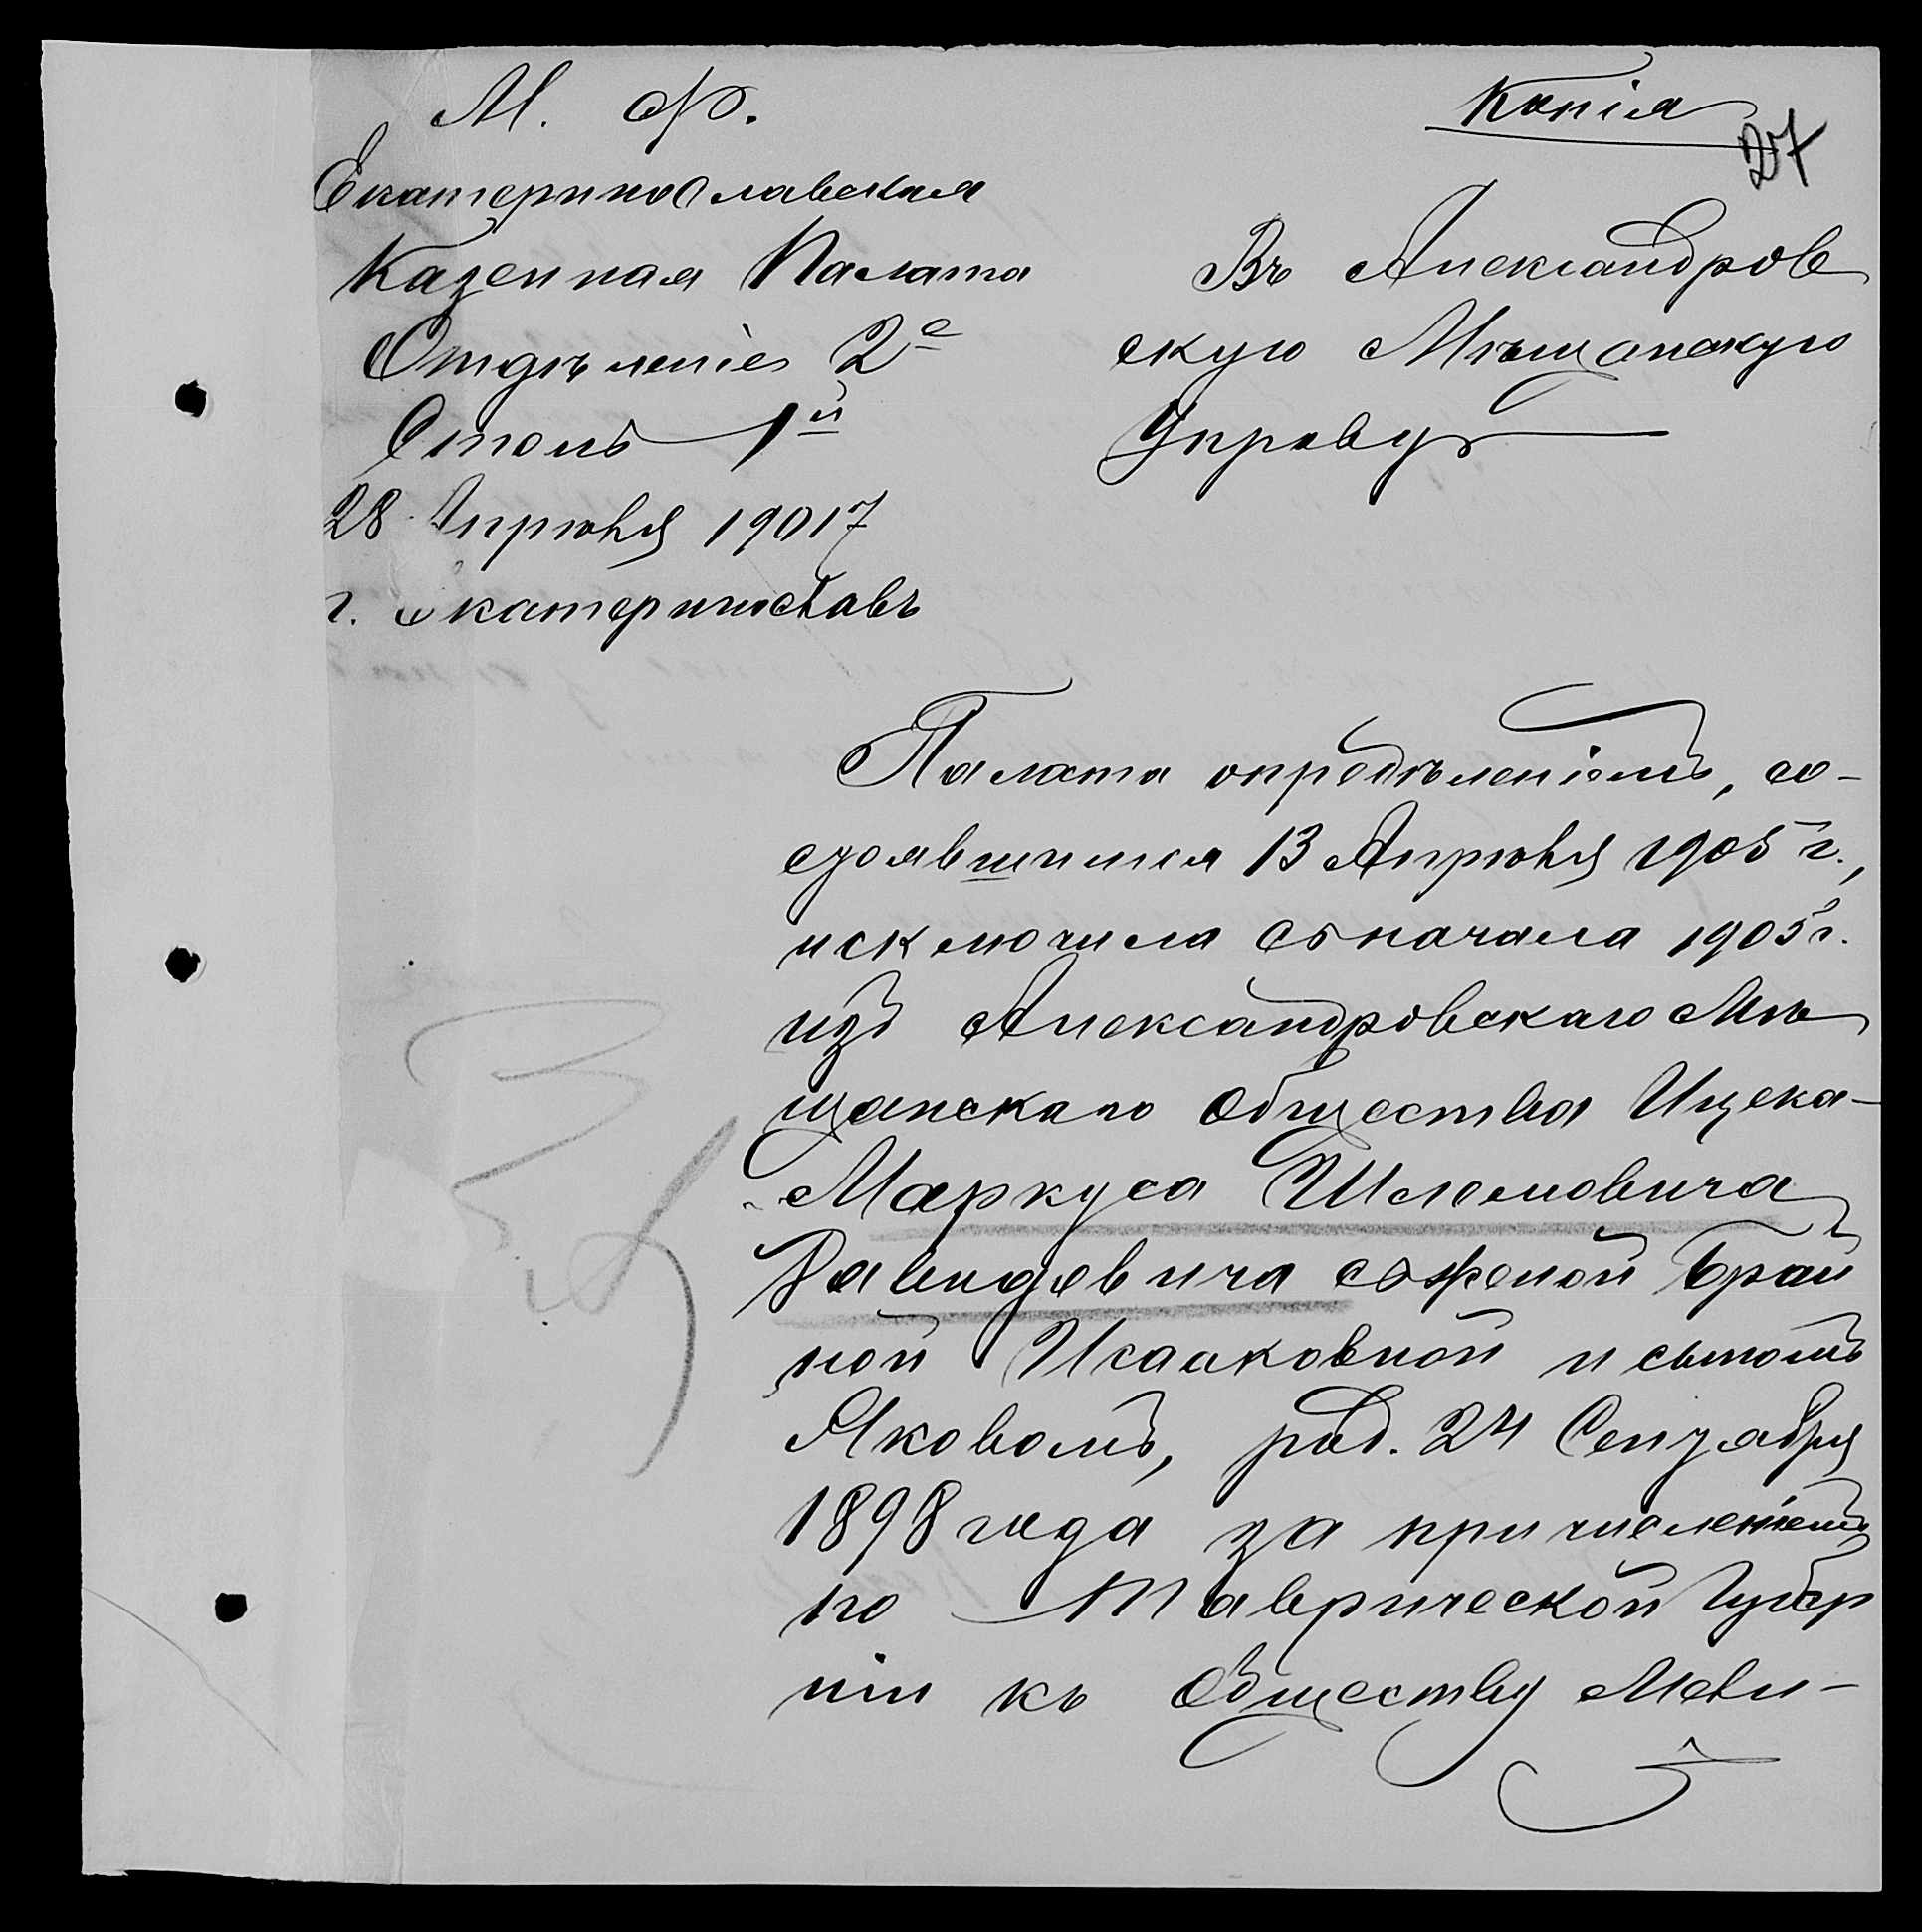 М. Ф.
Копія
27
Екатеринославская
Казенная Палата
Отдѣленіе 2е
Столъ 1й
28 Апрѣля 19017
г. Екатеринославъ
Въ Александров
скую Мѣщанскую
Управу
Палата опредѣленіемъ, со-
стоявшимся 13 Апрѣля 1905 г.,
исключила съ начала 1905 г.
изъ Александровскаго Мѣ
щанскаго Общества Ицека-
-Маркуса Шлемовича
Давидовича съ женой Брай
ной Исааковной и сыномъ
Яковомъ, род. 24 Сентября
1898 года за причисленіемъ
по Таврической Губер
ніи къ Обществу Мели-